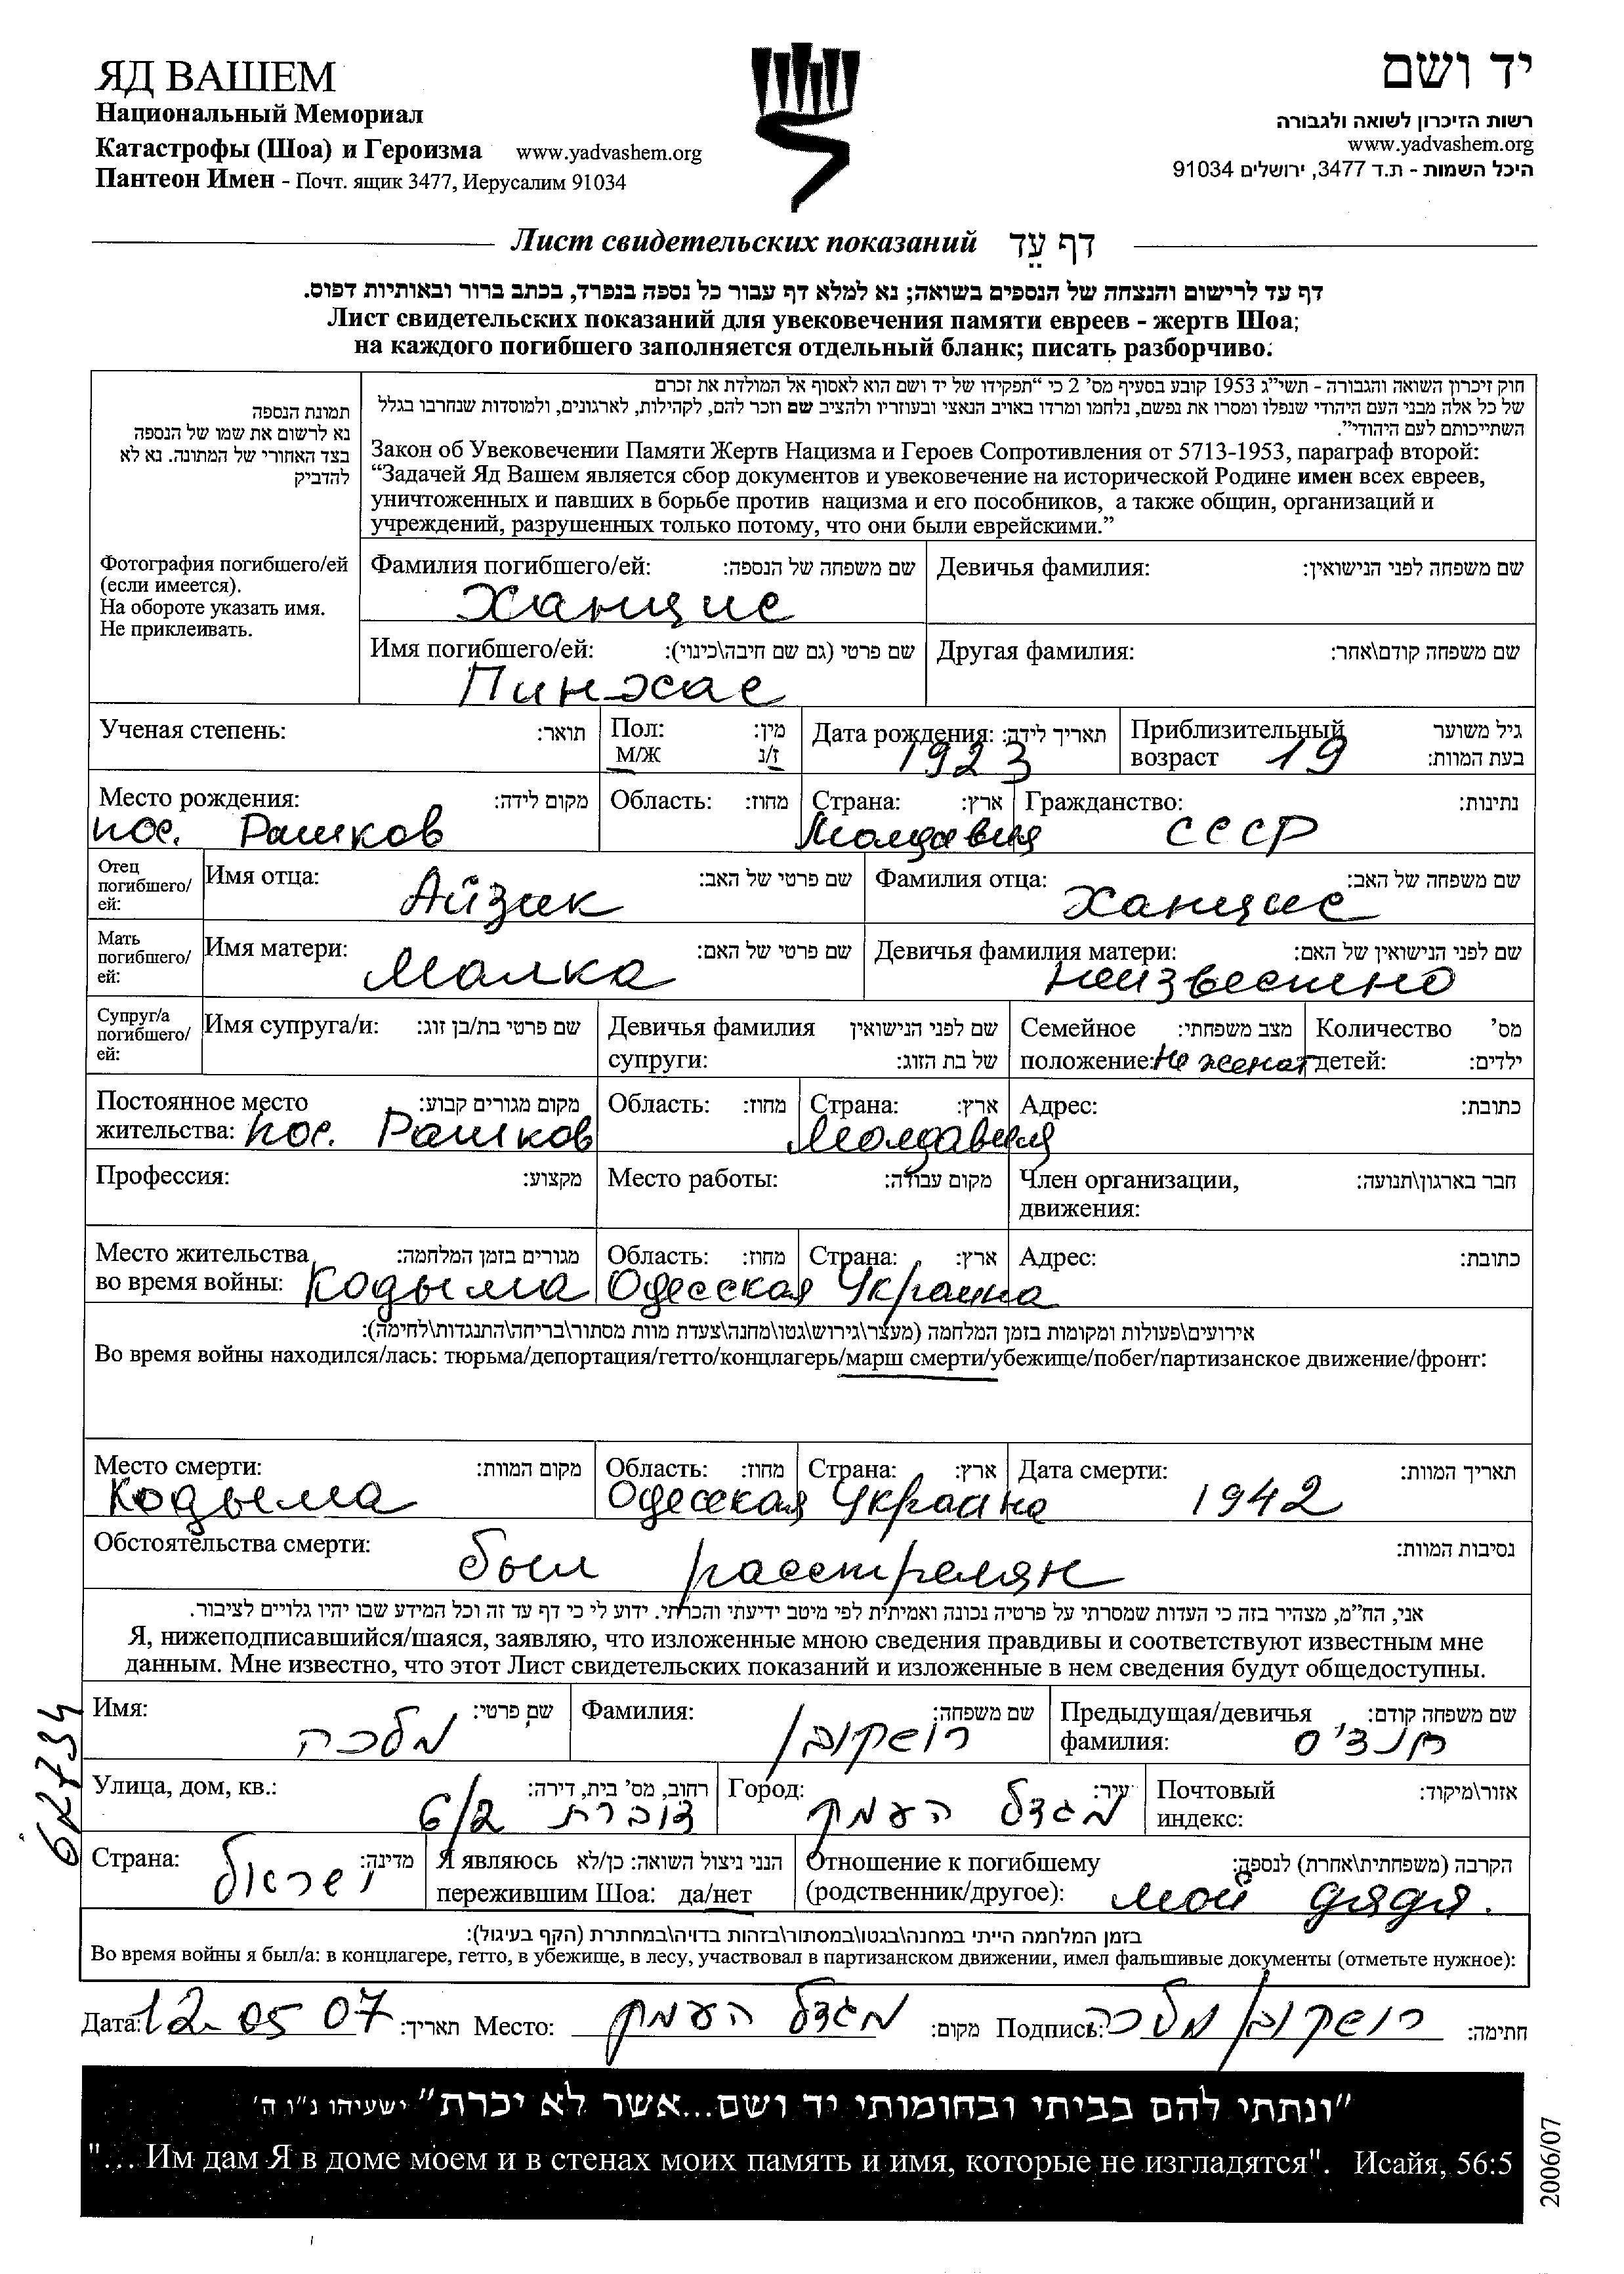 ЯД ВАШЕМ
Национальный Мемориал
Катастрофы (Шоа) и Героизма www.yadvashem.org
Пантеон Имен - Почт. ящик 3477, Иерусалим 91034
יד ושם
רשות הזיכרון לשואה ולגבורה
www.yadvashem.org
היכל השמות - ת.ד 3477, ירושלים 91034
Лист свидетельских показаний דף עֵד
דף עד לרישום והנצחה של הנספים בשואה; נא למלא דף עבור כל נספה בנפרד, בכתב ברור ובאותיות דפוס.
Лист свидетельских показаний для увековечения памяти евреев - жертв Шоа;
на каждого погибшего заполняется отдельный бланк; писать разборчиво.
תמונת הנספה
נא לרשום את שמו של הנספה
בצד האחורי של המתונה. נא לא
להדביק
Фотография погибшего/ей
(если имеется).
На обороте указать имя.
Не приклеивать.
חוק זיכרון השואה והגבורה - תשי"ג 1953 קובע בסעיף מס' 2 כי "תפקידו של יד ושם הוא לאסוף אל המולדת את זכרם
של כל אלה מבני העם היהודי שנפלו ומסרו את נפשם, נלחמו ומרדו באויב הנאצי ובעוזריו ולהציב שם וזכר להם, לקהילות, לארגונים, ולמוסדות שנחרבו בגלל
השתייכותם לעם היהודי".
Закон об Увековечении Памяти Жертв Нацизма и Героев Сопротивления от 5713-1953, параграф второй:
"Задачей Яд Вашем является сбор документов и увековечение на исторической Родине имен всех евреев,
уничтоженных и павших в борьбе против нацизма и его пособников, а также общин, организаций и
учреждений, разрушенных только потому, что они были еврейскими."
Фамилия погибшего/ей: שם משפחה של הנספה: Девичья фамилия: שם משפחה לפני הנישואין:
Ханцис
Имя погибшего/ей: שם פרטי (גם שם חיבה\כינוי): Другая фамилия: שם משפחה קודם\אחר:
Пинхас
Ученая степень: תואר: Пол: מין: Дата рождения: תאריך לידה: Приблизительный גיל משוער
М/Ж ז/נ 1923 возраст 19 בעת המוות:
Место рождения: מקום לידה: Область: מחוז: Страна: ארץ: Гражданство: נתינות:
пос. Рашков Молдавия СССР
Отец
погибшего/
ей:
Имя отца: שם פרטי של האב: Фамилия отца: שם משפחה של האב:
Айзик Ханцис
Мать
погибшего/
ей:
Имя матери: שם פרטי של האם: Девичья фамилия матери: שם לפני הנישואין של האם:
Малка неизвестно
Супруг/а
погибшего/
ей:
Имя супруга/и: שם פרטי בת/בן זוג: Девичья фамилия שם לפני הנישואין Семейное מצב משפחתי: Количество מס'
супруги: של בת הזוג: положение: не женат детей: ילדים:
Постоянное место מקום מגורים קבוע: Область: מחוז: Страна: ארץ: Адрес: כתובת:
жительства: пос. Рашков Молдавия
Профессия: מקצוע: Место работы: מקום עבודה: Член организации, חבר בארגון\תנועה:
движения:
Место жительства מגורים בזמן המלחמה: Область: מחוז: Страна: ארץ: Адрес: כתובת:
во время войны: Кодыма Одесская Украина
אירועים\פעולות ומקומות בזמן המלחמה (מעצר\גירוש\גטו\מחנה\צעדת מוות מסתור\בריחה\התנגדות\לחימה):
Во время войны находился/лась: тюрьма/депортация/гетто/концлагерь/марш смерти/убежище/побег/партизанское движение/фронт:
Место смерти: מקום המוות: Область: מחוז: Страна: ארץ: Дата смерти: תאריך המוות:
Кодыма Одесская Украина 1942
Обстоятельства смерти: נסיבות המוות:
был расстрелян
אני, הח"מ, מצהיר בזה כי העדות שמסרתי על פרטיה נכונה ואמיתית לפי מיטב ידיעתי והכרתי. ידוע לי כי דף עד זה וכל המידע שבו יהיו גלויים לציבור.
Я, нижеподписавшийся/шаяся, заявляю, что изложенные мною сведения правдивы и соответствуют известным мне
данным. Мне известно, что этот Лист свидетельских показаний и изложенные в нем сведения будут общедоступны.
Имя: שם פרטי: Фамилия: שם משפחה: Предыдущая/девичья שם משפחה קודם:
מלכה רושקובן фамилия: חנציס
Улица, дом, кв.: רחוב, מס' בית, דירה: Город: עיר: Почтовый אזור\מיקוד:
דוברת 6/2 מגדל העמק индекс:
Страна: מדינה: Я являюсь הנני ניצול השואה: כן/לא Отношение к погибшему הקרבה (משפחתית\אחרת) לנספה:
ישראל пережившим Шоа: да/нет (родственник/другое): мой дядя.
בזמן המלחמה הייתי במחנה\בגטו\במסתור\בזהות בדויה\במחתרת (הקף בעיגול):
Во время войны я был/а: в концлагере, гетто, в убежище, в лесу, участвовал в партизанском движении, имел фальшивые документы (отметьте нужное):
Дата: 12.05 07 תאריך: Место: מגדל העמק מקום: Подпись: רושקובן מלכה חתימה:
"ונתתי להם בביתי ובחומותי יד ושם...אשר לא יכרת" ישעיהו נ"ו ה'
"... Им дам Я в доме моем и в стенах моих память и имя, которые не изгладятся". Исайя, 56:5
2006/07